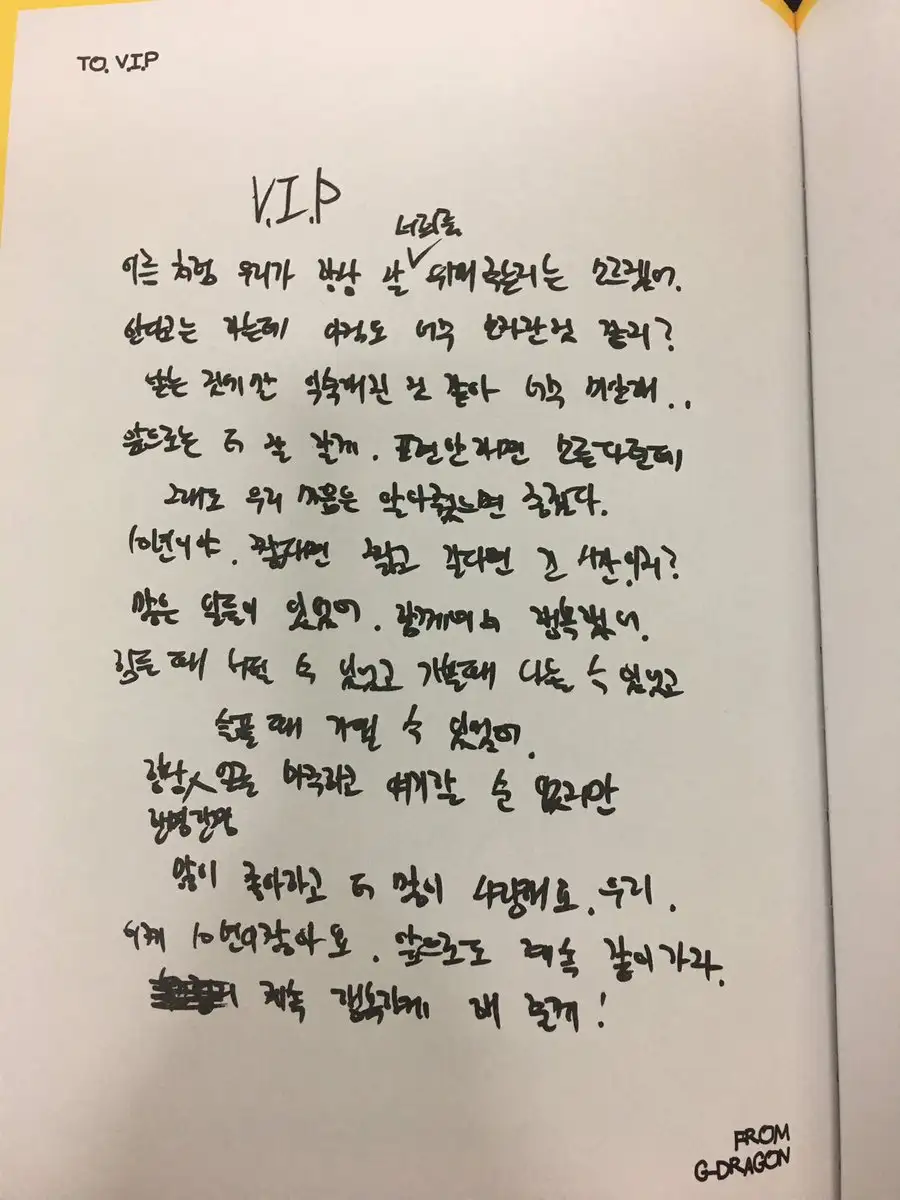 TO. V.I.P
V.I.P
너희를
이름 처럼 우리가 항상 잘 대해주는지는 모르겠어.
한다고는 하는데 아직도 너무 모자란것 같지?
받는 것에만 익숙해진 것 같아 너무 미안해..
앞으로는 더 잘 할게. 표현안하면 모른다던데
그래도 우리 마음은 알아줬으면 좋겠다.
10년이야. 짧다면 짧고 길다면 긴 시간이지?
많은 일들이 있었어. 함께여서 행복했어.
힘들 때 버틸 수 있었고 기쁠때 나눌 수 있었고
슬플 때 기댈 수 있었어.
항상 있을 마주하고 얘기할 순 없지만
한명한명
많이 좋아하고 더 많이 사랑해요. 우리.
이제 10년이잖아요. 앞으로도 계속 같이가자.
계속 행복하게 해 줄게!
FROM
G-DRAGON